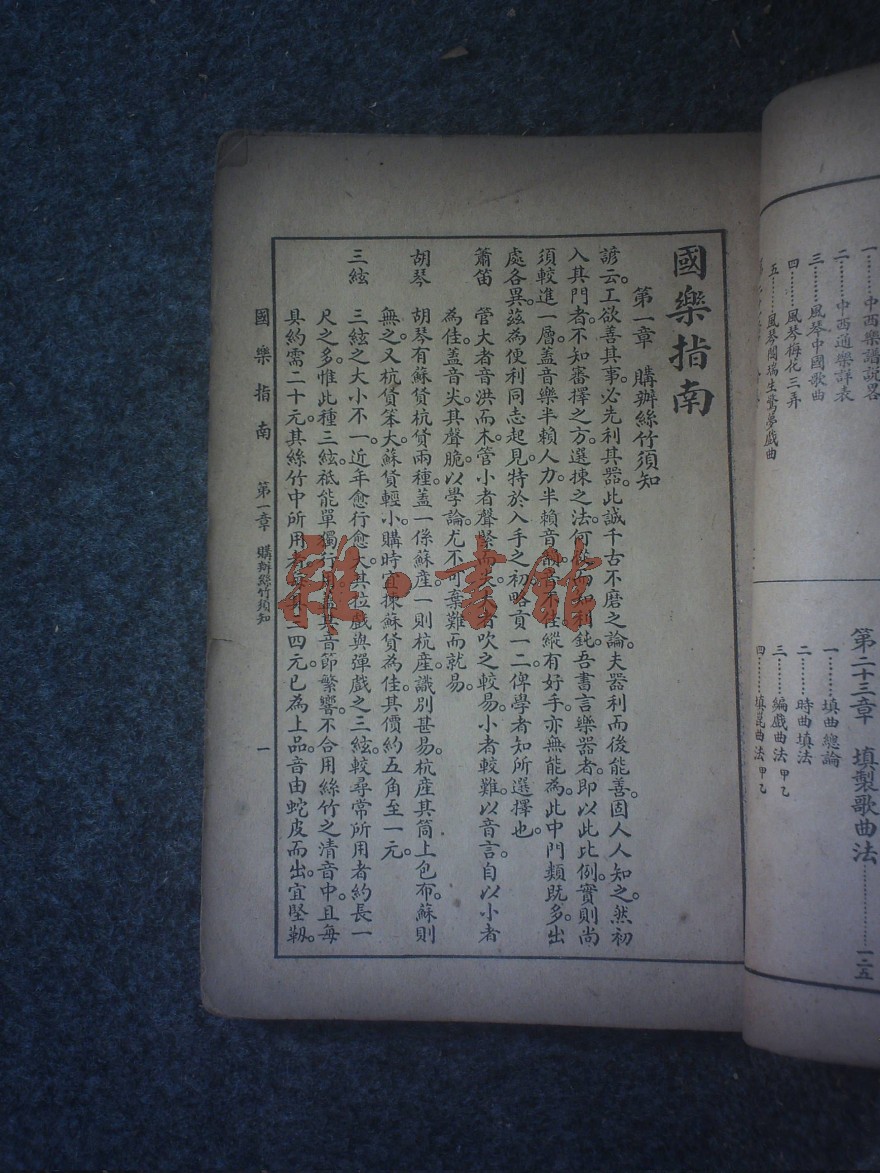 一………中西樂講說畧
二………中西通樂詳表
三………風琴中國歌曲
四………風琴梅花三弄
五………風琴閙瑞生驚夢戲曲
第二十三章　填製歌曲法…………一二五
一………填曲總論
二………時曲填法
三………編戲曲法 甲乙
四………填崑曲法 甲乙
國樂指南
第一章　購辦絲竹須知
諺云。工欲善其事。必先利其器。此誠千古不磨之論。夫器利而後能善。固人人知之。然初
入其門者。不知審擇之方。選揀之法。何從而知利鈍。吾書言樂器者。即以此比例。實則尚
須較進一層。蓋音樂半賴人力。半賴音韻。音不佳。縱有好手。亦無能為。此中門類既多。出
處各異。茲為便利同志起見。特於入手之初。略貢一二。俾學者知所選擇也。
簫笛　管大者音洪而木。管小者聲緊而尖。大者吹之較易。小者較難。以音言。自以小者
為佳。蓋音尖。其聲脆。以學論。尤不可棄難而就易。
胡琴　胡琴有蘇貨杭貨兩種。蓋一係蘇産。一則杭産。識別甚易。杭産其筒上包布。蘇則
無之。又杭貨笨大。蘇貨輕小。購時宜揀蘇貨為佳。其價約五角至一元。
三絃　三絃之大小不一。近年愈行愈大。其拉戲與彈戲之三絃。較尋常所用者約長一
尺之多。惟此種三絃。祗能單獨行用。蓋其音節繁響。不合用絲竹之清音中。且每
具約需二十元。其絲竹中所用者。每具三四元已為上品。音由蛇皮而出。宜堅靱。
國樂指南　第一章　購辦絲竹須知　一
雅·書館